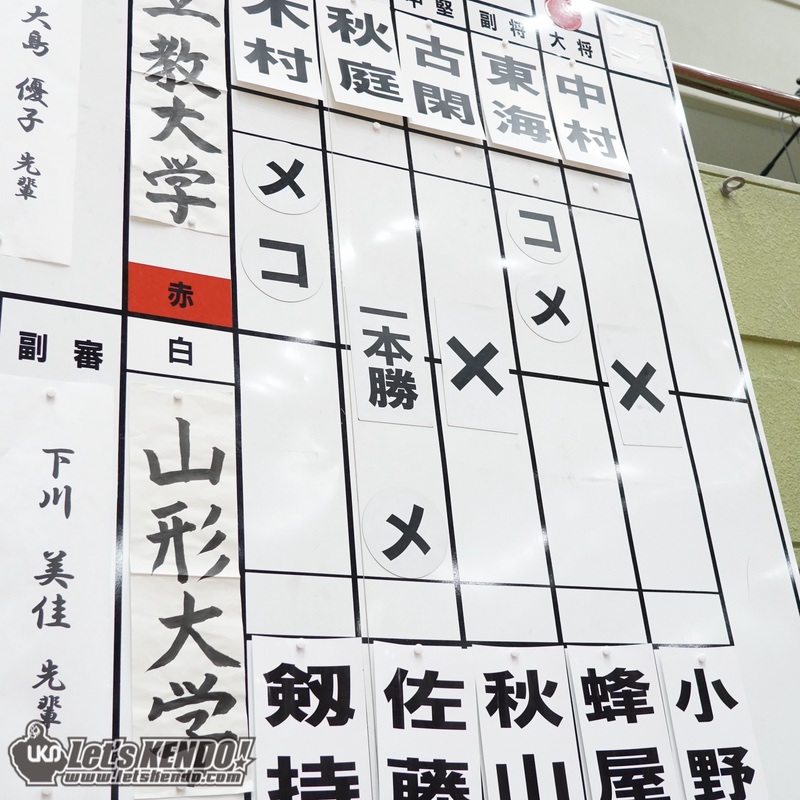 大島 優子 先輩
立教大学
赤
白
山形大学
副審
下川 美佳 先輩
中堅
副将
大将
木村
秋庭
古閑
東海
中村
メ
コ
一本勝
メ
×
コ
メ
×
剱持
佐藤
秋山
蜂屋
小野
LKD Let's KENDO!
www.letskendo.com